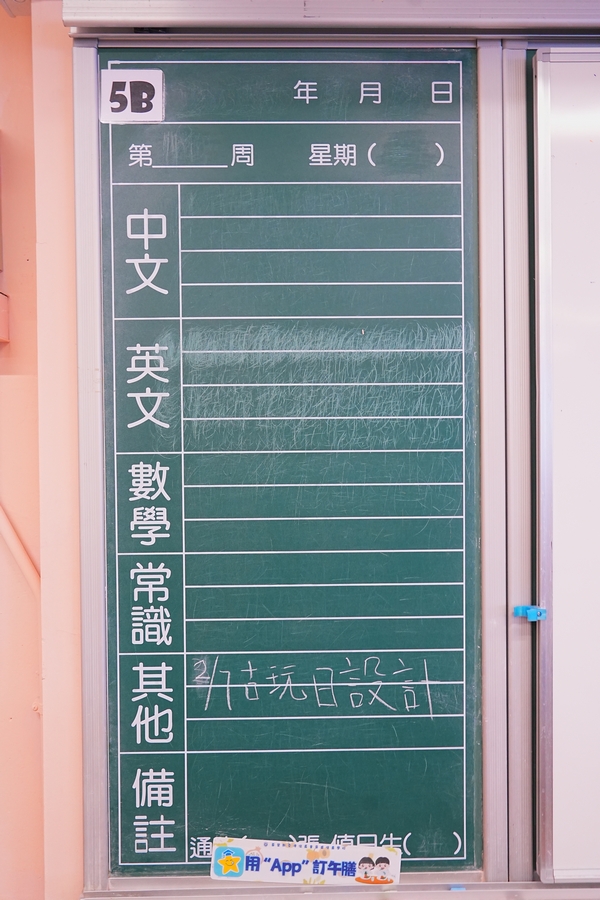 5B
年 月 日
第______周 星期( )
中文
英文
數學
常識
其他
2/7古玩日設計
備註
通 ( )張 值日生( )
用“App”訂午膳